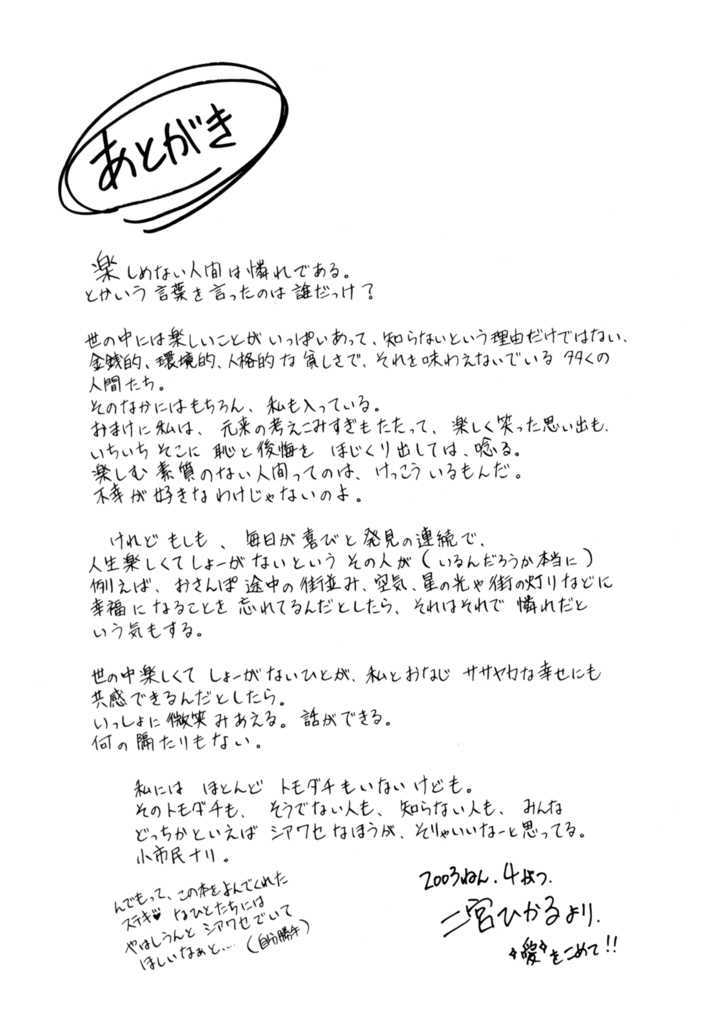 あとがき
楽しめない人間は憐れである。
とかいう言葉を言ったのは誰だっけ?
世の中には楽しいことがいっぱいあって、知らないという理由だけではない、
金銭的、環境的、人格的な貧しさで、それを味わえないでいる多くの
人間たち。
そのなかにはもちろん、私も入っている。
おまけに私は、元来の考えこみすぎもたたって、楽しく笑った思い出も、
いちいちそこに恥と後悔をほじくり出しては、唸る。
楽しむ素質のない人間ってのは、けっこういるもんだ。
不幸が好きなわけじゃないのよ。
けれどもしも、毎日が喜びと発見の連続で、
人生楽しくてしょーがないというその人が(いるんだろうか本当に)
例えば、おさんぽ途中の街並み、空気、星の光や街の灯りなどに
幸福になることを忘れてるんだとしたら、それはそれで憐れだと
いう気もする。
世の中楽しくてしょーがないひとが、私とおなじササヤカな幸せにも
共感できるんだとしたら。
いっしょに微笑みあえる。話ができる。
何の隔たりもない。
私にはほとんどトモダチもいないけども。
そのトモダチも、そうでない人も、知らない人も、みんな
どっちかといえばシアワセなほうが、そりゃいいなーと思ってる。
小市民ナリ。
んでもって、この本をよんでくれた
ステキ♥なひとたちには
やはしうんとシアワセでいて
ほしいなぁと…(自分勝手)
2003ねん.4がつ.
二宮ひかるより.
愛をこめて!!